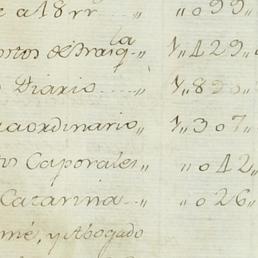 e a 18 rr ...... " " 099 "
ostos de Braiq.la " 1 " 429 "
o Diario ...... " 1 " 820 "
traordinario " 1 " 307 "
os Caporales " " 042 "
Catarina ... " " 026 "
omé, y Abogado